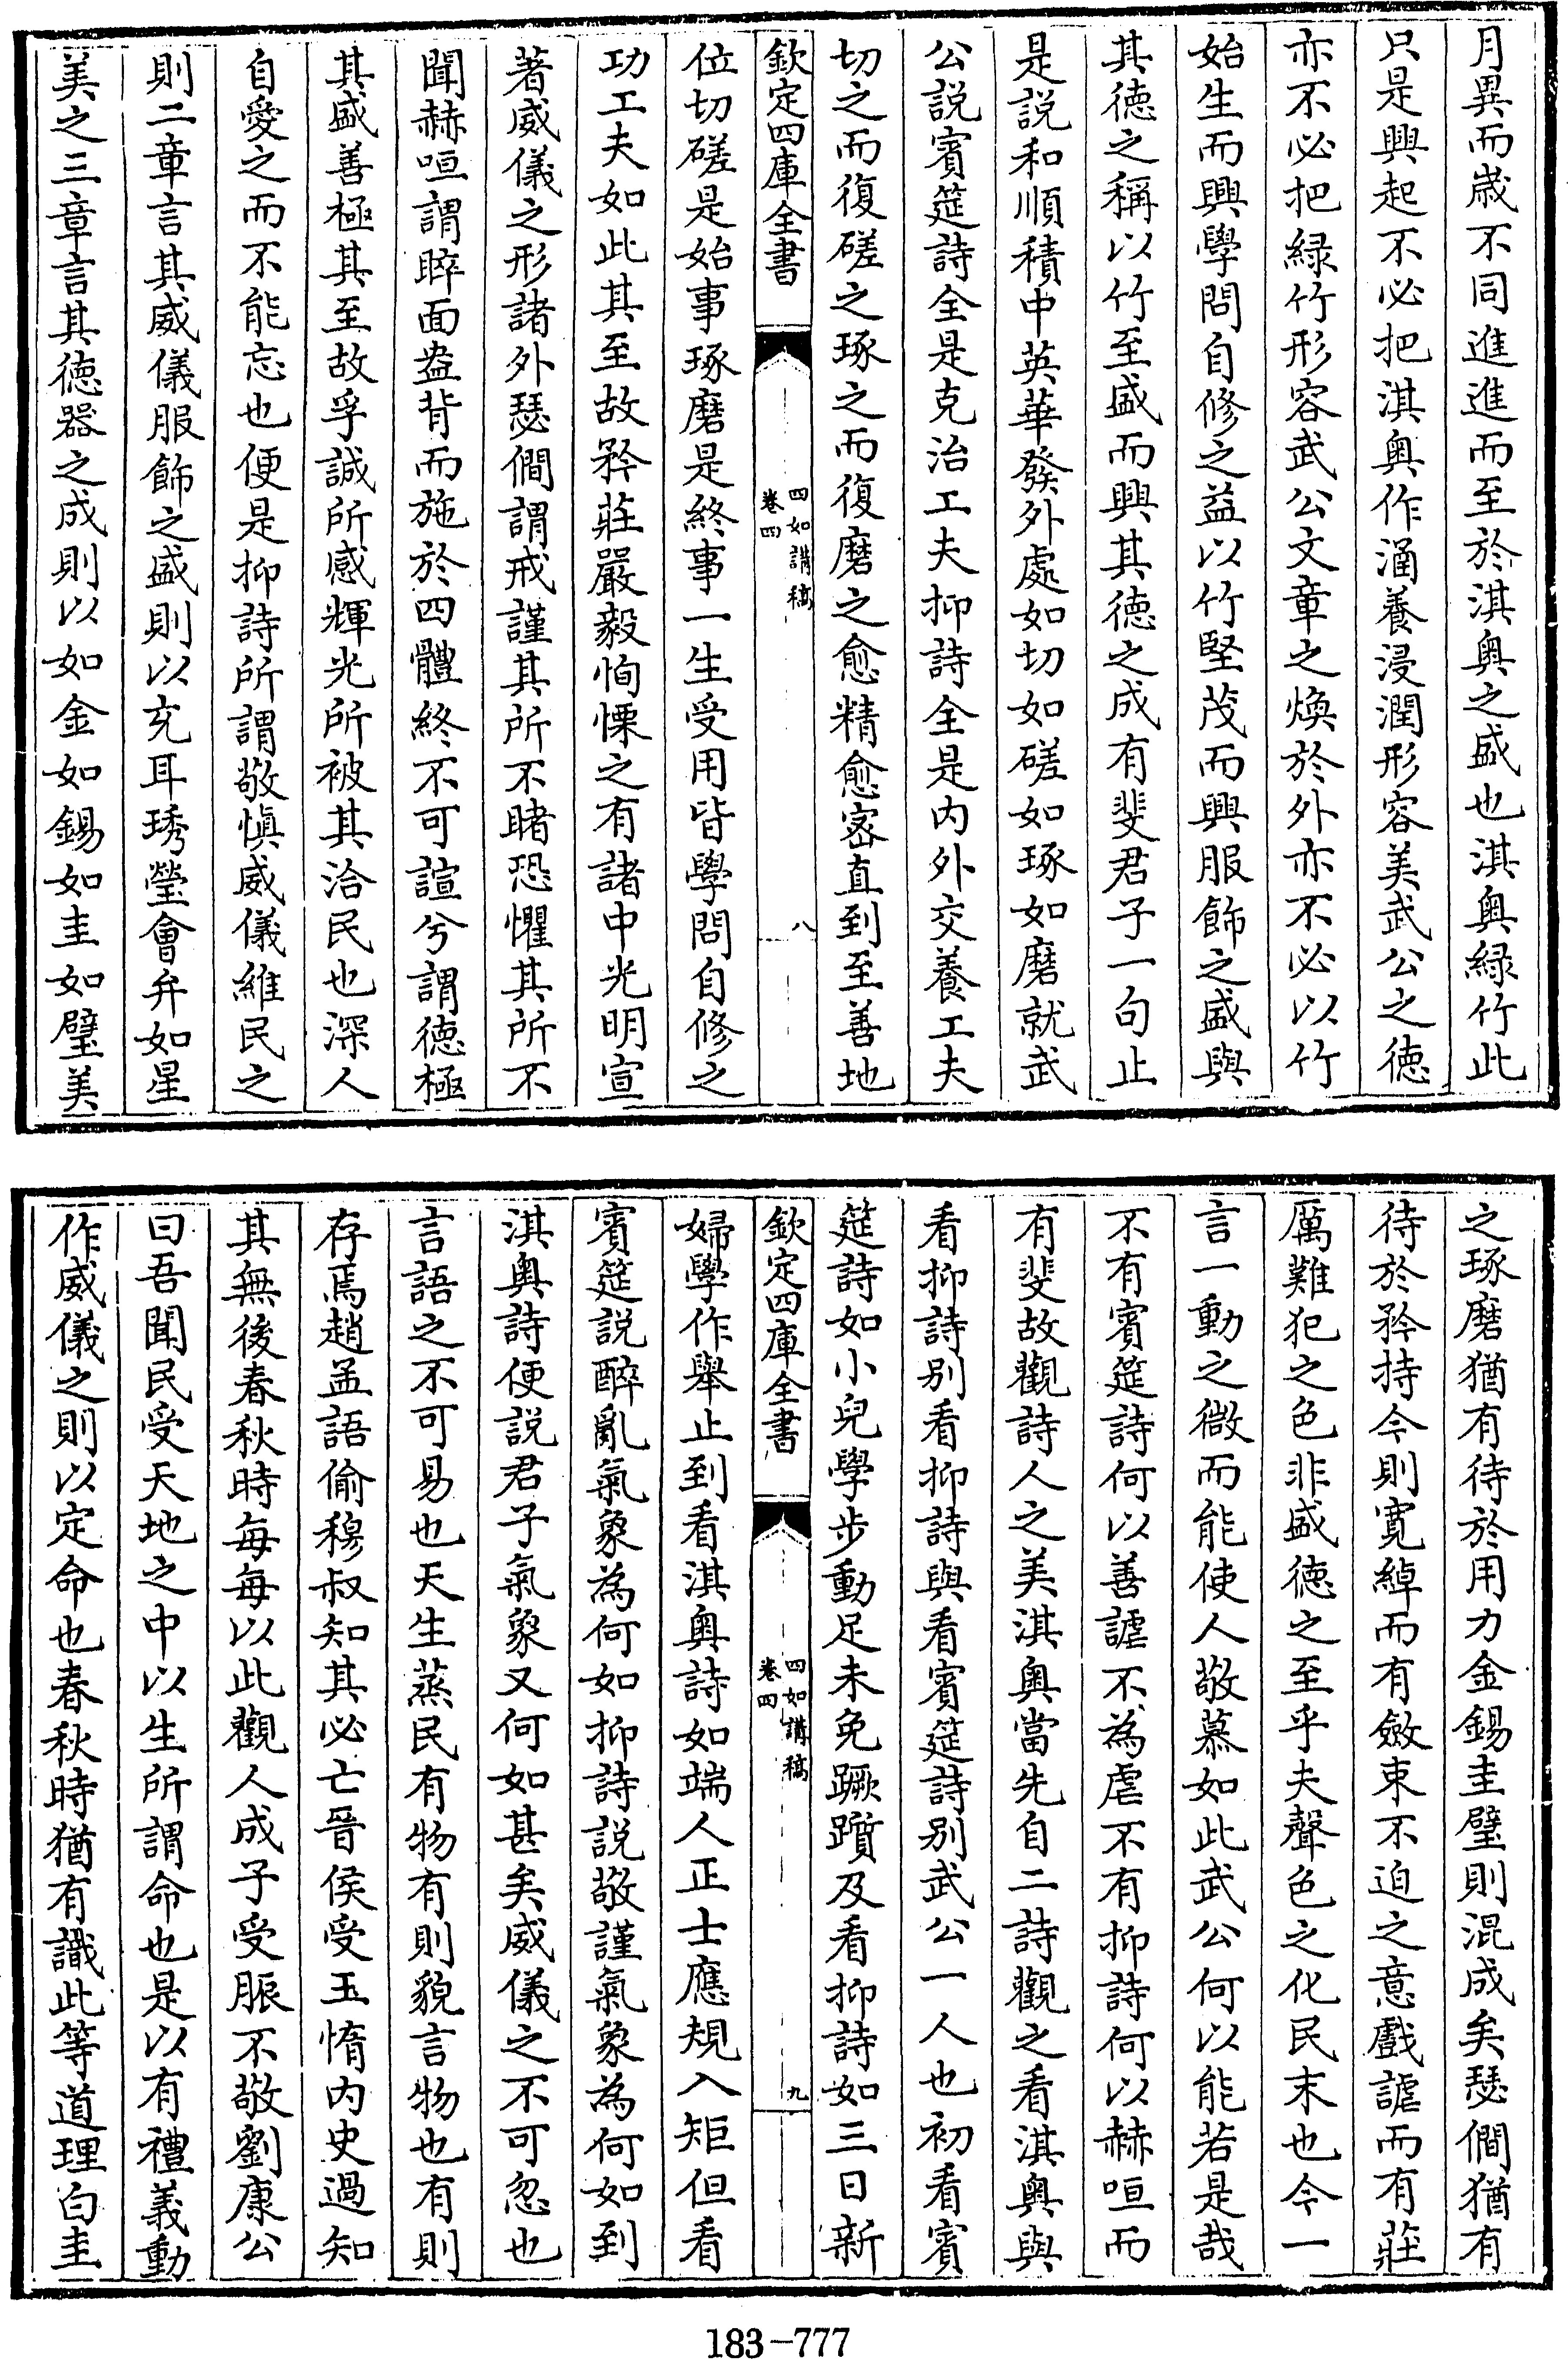 月異而嵗不同進進而至於淇奥之盛也淇奥緑竹此
只是興起不必把淇奥作涵養浸潤形容美武公之徳
亦不必把緑竹形容武公文章之煥於外亦不必以竹
始生而興學問自修之益以竹堅茂而興服飾之盛與
其徳之稱以竹至盛而興其徳之成有斐君子一句止
是説和順積中英華發外處如切如磋如琢如磨就武
公説賓筵詩全是克治工夫抑詩全是内外交養工夫
切之而復磋之琢之而復磨之愈精愈宻直到至善地
欽定四庫全書
四如講稿
卷四
八
位切磋是始事琢磨是終事一生受用皆學問自修之
功工夫如此其至故矜莊嚴毅恂慄之有諸中光明宣
著威儀之形諸外瑟僩謂戒謹其所不睹恐懼其所不
聞赫咺謂睟面盎背而施於四體終不可諠兮謂徳極
其盛善極其至故孚誠所感輝光所被其洽民也深人
自愛之而不能忘也便是抑詩所謂敬慎威儀維民之
則二章言其威儀服飾之盛則以充耳琇瑩會弁如星
美之三章言其徳器之成則以如金如錫如圭如璧美
之琢磨猶有待於用力金錫圭璧則混成矣瑟僩猶有
待於矜持今則寛綽而有斂束不迫之意戲謔而有莊
厲難犯之色非盛徳之至乎夫聲色之化民末也今一
言一動之微而能使人敬慕如此武公何以能若是哉
不有賓筵詩何以善謔不為虐不有抑詩何以赫咺而
有斐故觀詩人之美淇奥當先自二詩觀之看淇奥與
看抑詩别看抑詩與看賓筵詩别武公一人也初看賓
筵詩如小兒學步動足未免蹶躓及看抑詩如三日新
欽定四庫全書
四如講稿
卷四
九
婦學作舉止到看淇奥詩如端人正士應規入矩但看
賓筵説醉亂氣象為何如抑詩説敬謹氣象為何如到
淇奥詩便説君子氣象又何如甚矣威儀之不可忽也
言語之不可易也天生蒸民有物有則貌言物也有則
存焉趙孟語偷穆叔知其必亡晉侯受玉惰内史過知
其無後春秋時每每以此觀人成子受脤不敬劉康公
曰吾聞民受天地之中以生所謂命也是以有禮義動
作威儀之則以定命也春秋時猶有識此等道理白圭
183-777